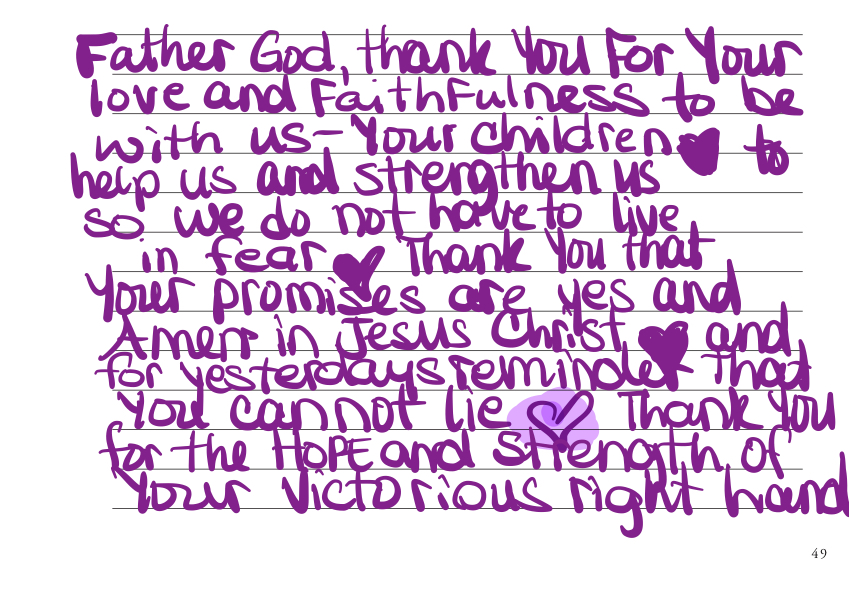 Father God, thank You For Your
love and FaithFulness to be
with us - Your children 💜 to
help us and strengthen us
so we do not have to live
in fear 💜 Thank You that
Your promises are yes and
Amen in Jesus Christ 💜 and
for yesterdays reminder that
You cannot lie 💜 Thank You
for the HOPE and strength of
Your Victorious right hand
49